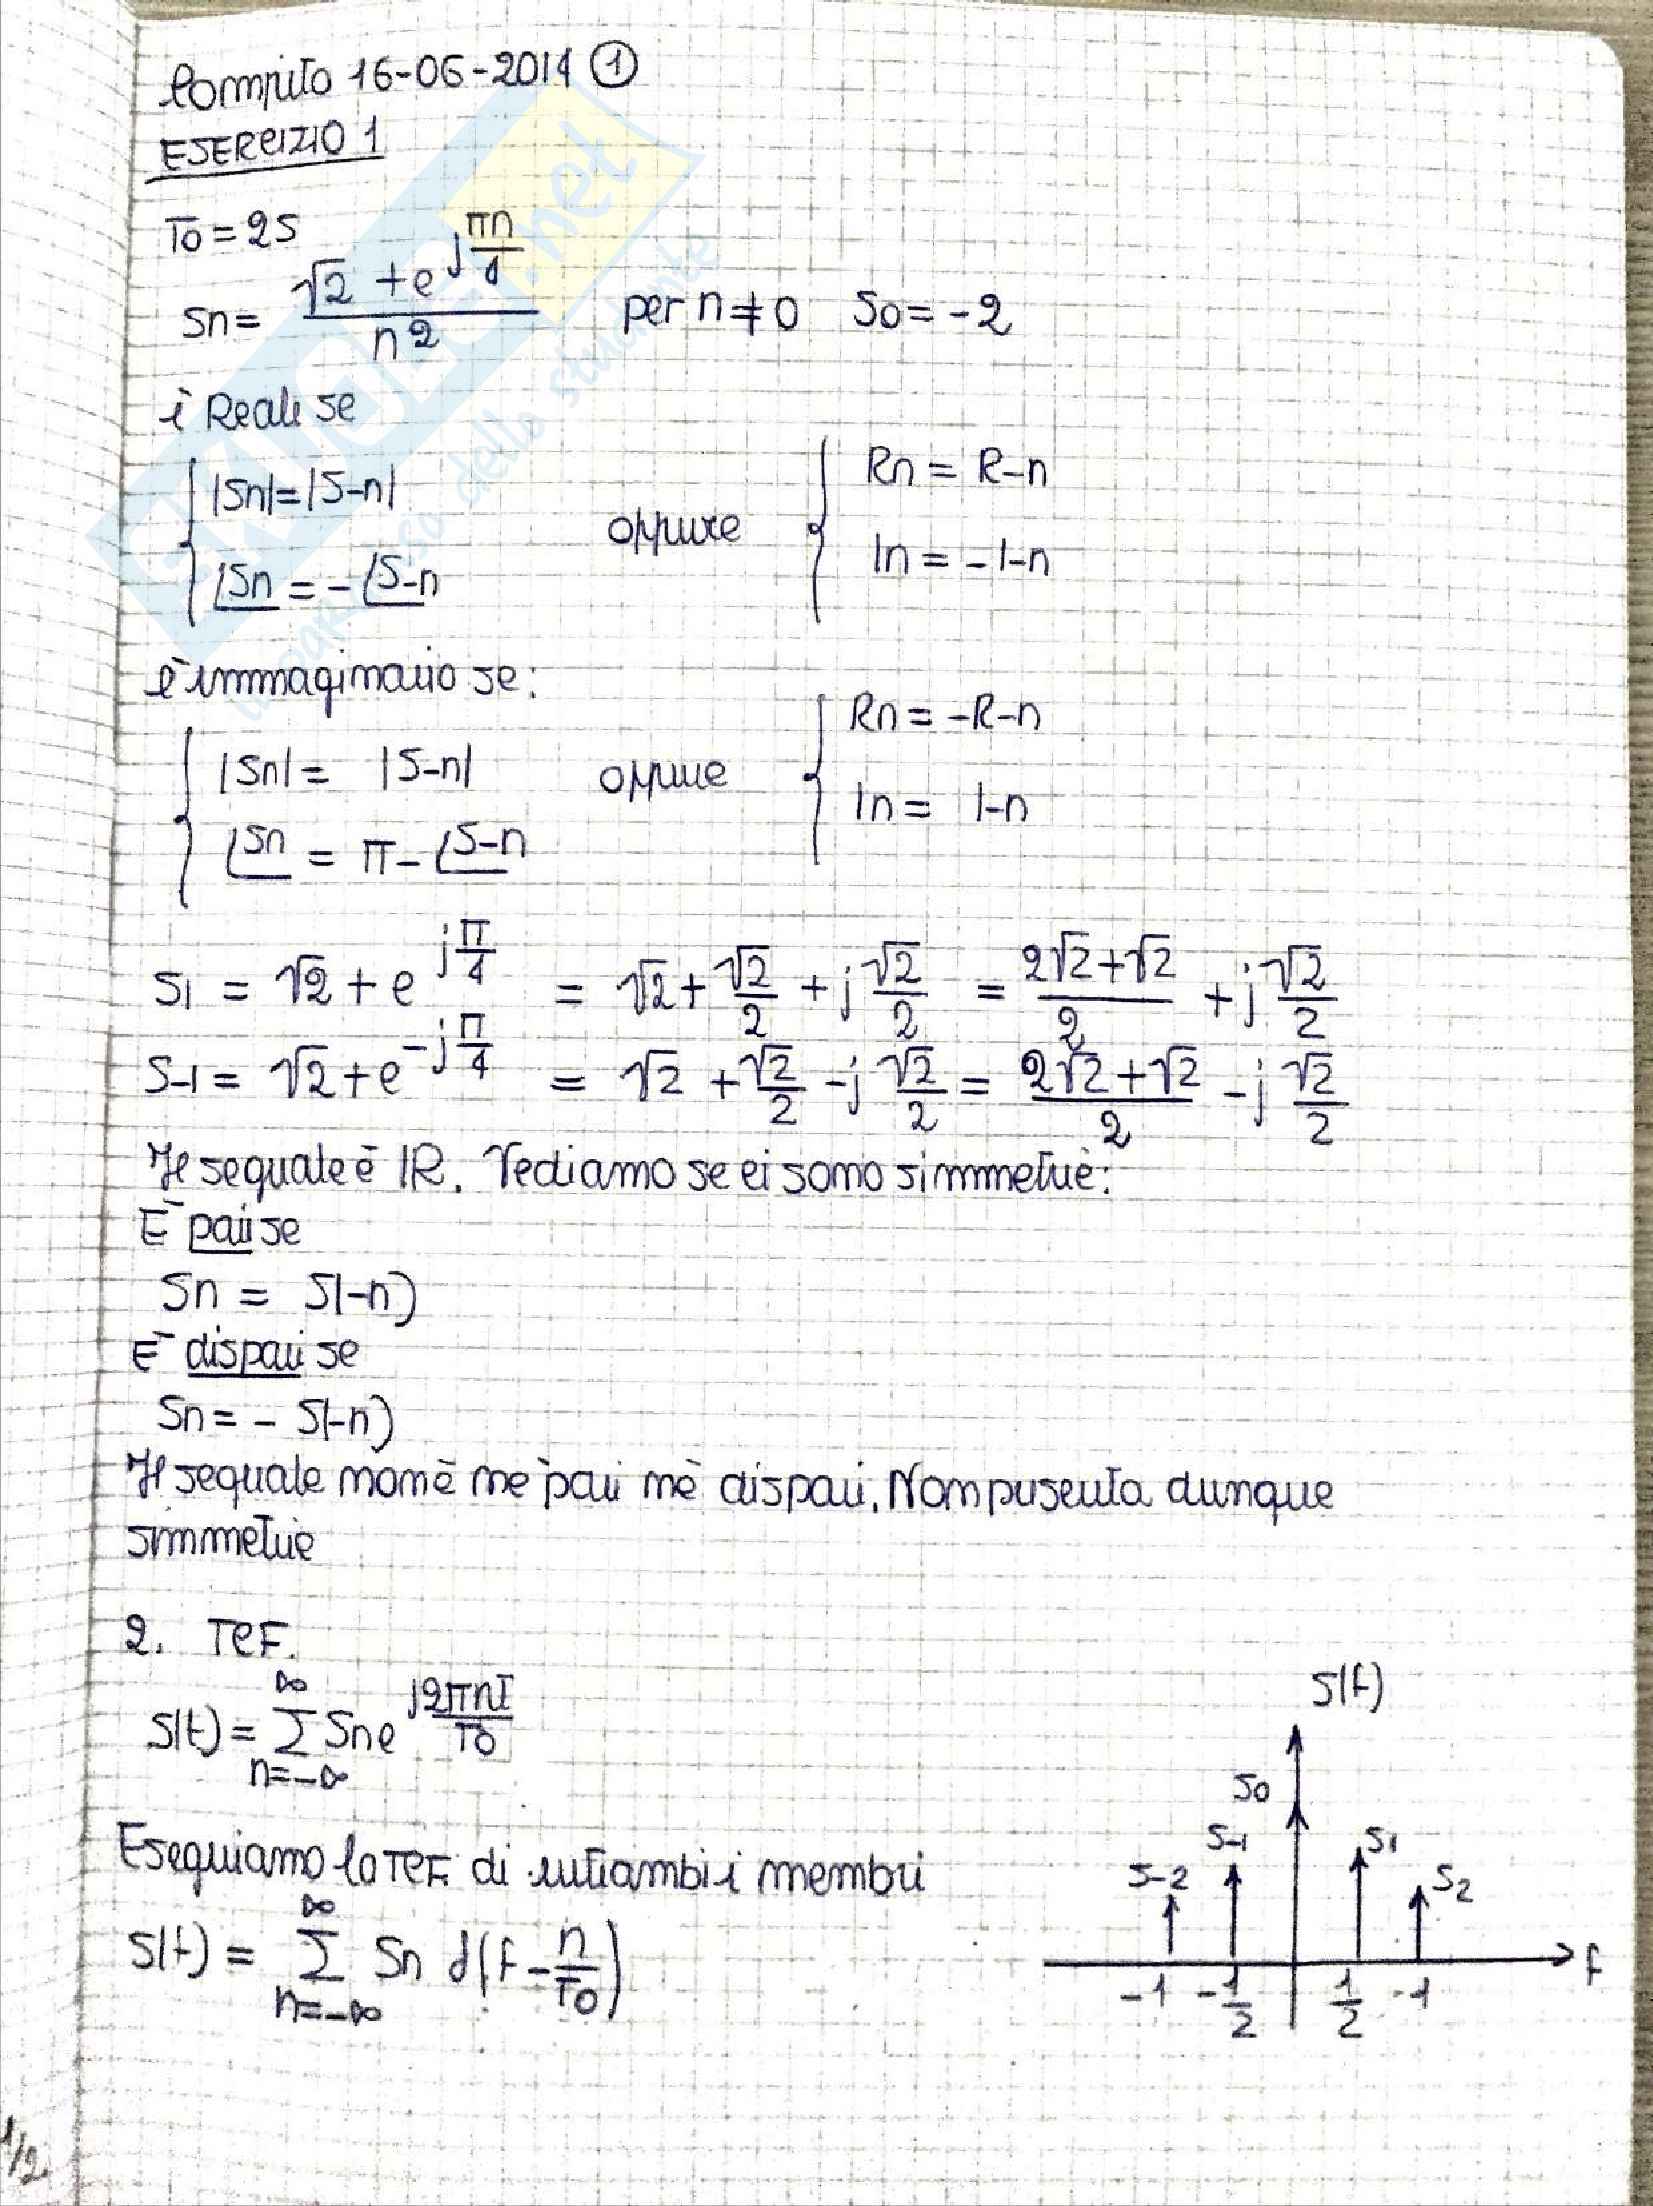 Compito 16-06-2014 ①
ESERCIZIO 1
T0 = 2s
Sn = (√2 + e^(jπn/4)) / n² per n ≠ 0 S0 = -2
è Reale se
|Sn| = |S-n| oppure Rn = R-n
∠Sn = -∠S-n In = -I-n
è immaginario se:
|Sn| = |S-n| oppure Rn = -R-n
∠Sn = π - ∠S-n In = I-n
S1 = √2 + e^(jπ/4) = √2 + √2/2 + j√2/2 = (2√2+√2)/2 + j√2/2
S-1 = √2 + e^(-jπ/4) = √2 + √2/2 - j√2/2 = (2√2+√2)/2 - j√2/2
Il segnale è IR. Vediamo se ci sono simmetrie:
È pari se
Sn = S(-n)
È dispari se
Sn = - S(-n)
Il segnale non è nè pari nè dispari. Non presenta dunque
simmetrie
2. TCF.
S(t) = ∑_(n=-∞)^∞ Sn e^(j2πnt/T0)
Eseguiamo la TCF di entrambi i membri
S(f) = ∑_(n=-∞)^∞ Sn δ(f - n/T0)
S(f)
S0
S-2 S-1 S1 S2
-1 -1/2 1/2 -1 f
1/2
skuola.net
il paradiso dello studente